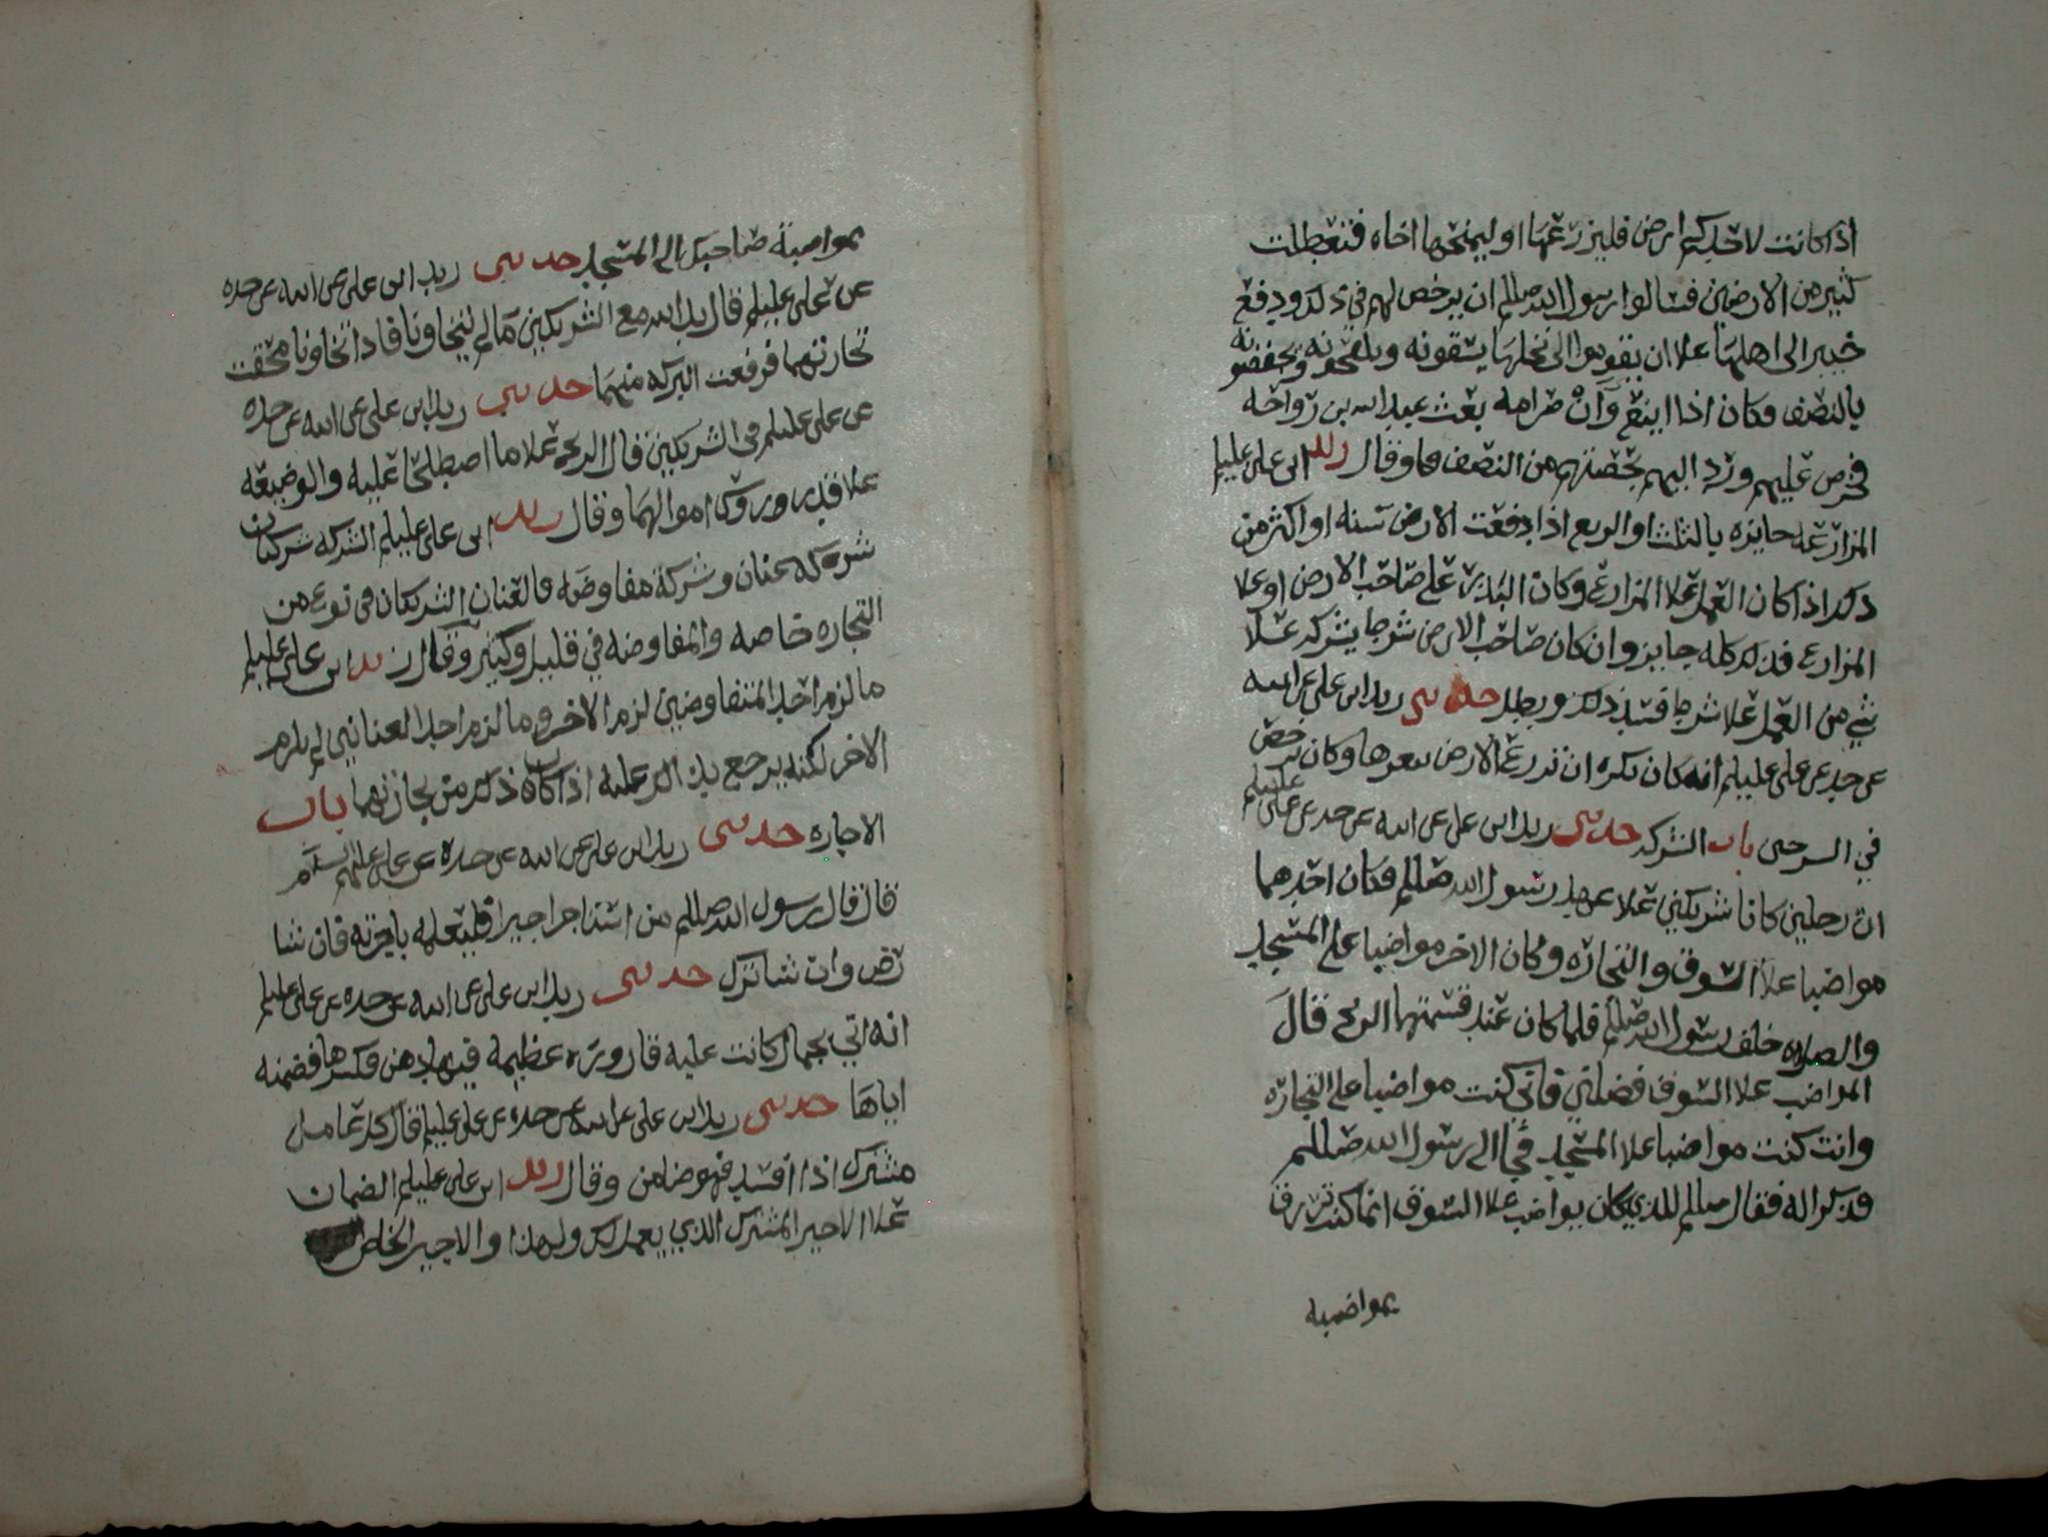 اذا كانت لاحدكم ارض فليزرعها او ليمنحها اخاه فتعطلت
كثير من الارضين فسالوا رسول الله صللم ان يرخص لهم في ذلك ودفع
خيبر الى اهلها علا ان يقوموا الى نخلها يسقونه ويلقحونه ويحفضونه
بالنصف فكان اذا اينع وآن صرامه بعث عبد الله بن رواحه
فخرص عليهم ورد اليهم بحصتهم من النصف وقال زيد ابن علي عليلم
المزارعه جايزه بالثلث او الربع اذا دفعت الارض سنه او اكثر من
ذلك اذا كان العمل علا المزارع وكان البذر على صاحب الارض او علا
المزارع فذلك كله جايز وان كان صاحب الارض شرط يشركه علا
شي من العمل علا شرط فسد ذلك وبطل حدثني زيد ابن علي عن ابيه
عن جده عن علي عليلم انه كان يكره ان تزرع الارض ببعرها وكان يرخص
في السرجين باب الشركه حدثني زيد ابن علي عن ابيه عن جده عن علي عليلم
ان رجلين كانا شريكين علا عهد رسول الله صللم فكان احدهما
مواضبا علا السوق والتجاره وكان الاخر مواضبا على المسجد
والصلاه خلف رسول الله صللم فلما كان عند قسمتهما الربح قال
المواضب علا السوق فضلني فاني كنت مواضبا على التجاره
وانت كنت مواضبا علا المسجد فجا الى رسول الله صللم
فذكرا له فقال صللم للذي كان يواضب علا السوق انما كنت ترزق
بمواضبه
بمواضبة صاحبك الى المسجد حدثني زيد ابن علي عن ابيه عن جده
عن علي عليلم قال يد الله مع الشريكين مالم يتخاونا فاذا تخاونا محقت
تجارتهما فرفعت البركه منهما حدثني زيد ابن علي عن ابيه عن جده
عن علي عليلم في الشريكين قال الربح علا ما اصطلحا عليه والوضيعه
علا قدر روس اموالهما وقال زيد ابن علي عليلم الشركه شركتان
شركه عنان وشركة مفاوضه فالعنان الشريكان في نوع من
التجاره خاصه والمفاوضه في قليل وكثير وقال زيد ابن علي عليلم
ما لزم احد المتفاوضين لزم الاخر وما لزم احد العنانين لم يلزم
الاخر لكنه يرجع عليه اذا كان ذلك من تجارتهما باب
الاجاره حدثني زيد ابن علي عن ابيه عن جده عن علي عليهم السلام
قال قال رسول الله صللم من استاجر اجيرا فليعلمه باجرته فان شا
رضي وان شا ترك حدثني زيد ابن علي عن ابيه عن جده عن علي عليلم
انه اتي بجمال كانت عليه قاروره عظيمه فيها دهن فكسرها فضمنه
اياها حدثني زيد ابن علي عن ابيه عن جده عن علي عليلم قال كل عامل
مشترك اذا افسد فهو ضامن وقال زيد ابن علي عليلم الضمان
علا الاجير المشترك الذي يعمل لك ولهذا والاجير الخاص